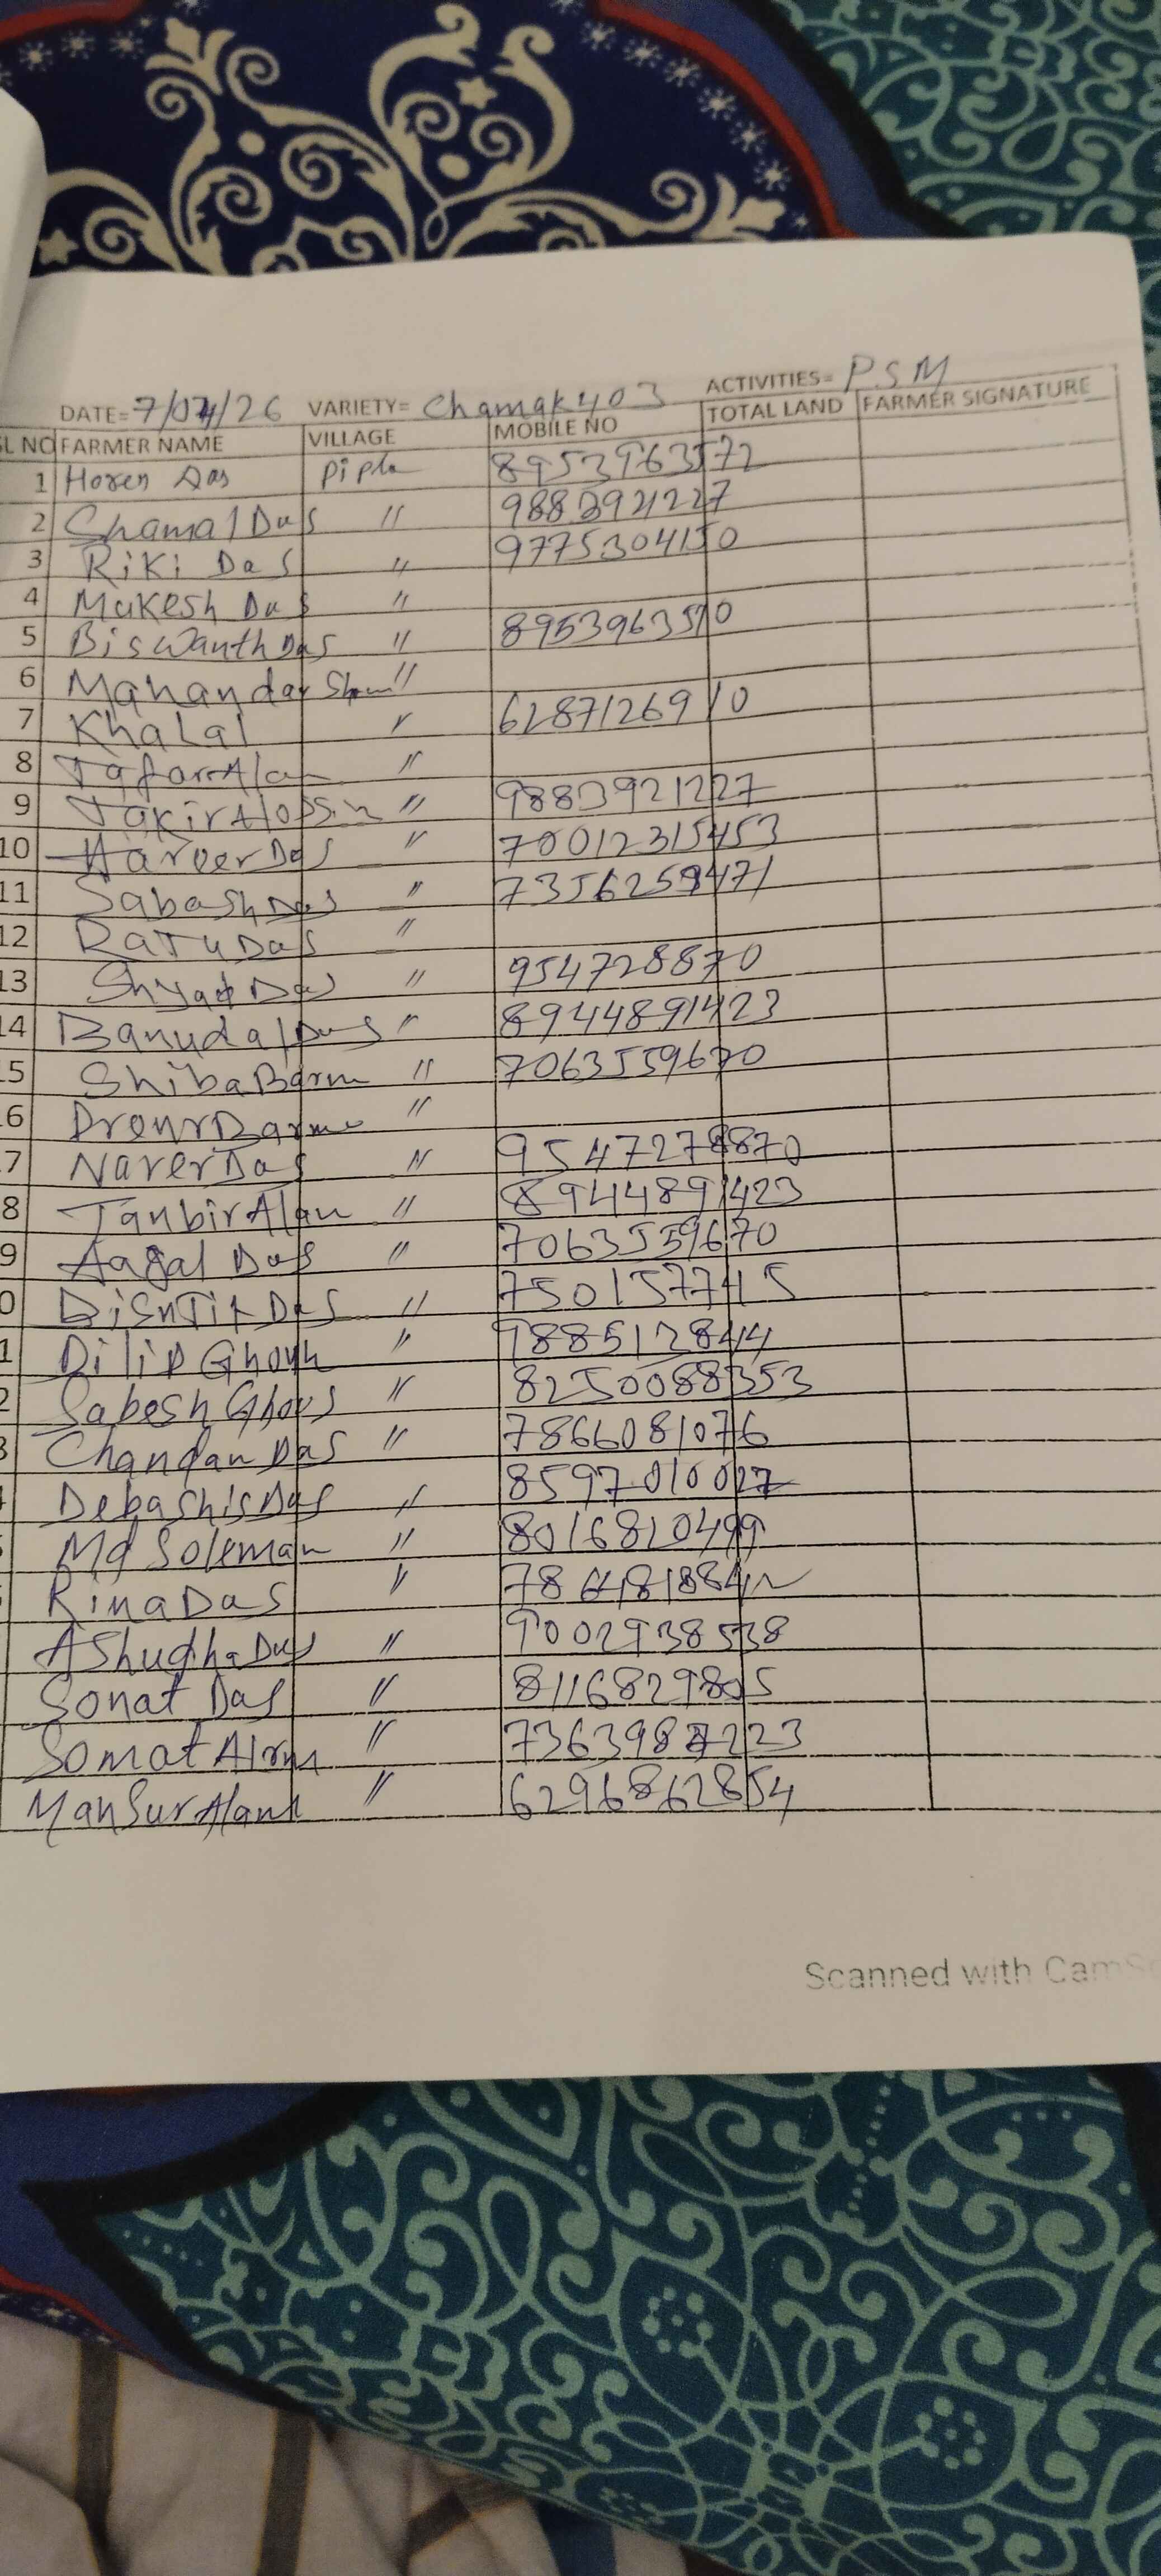 ACTIVITIES= PSM
DATE= 7/04/26 VARIETY= Chamak403
SL NO FARMER NAME VILLAGE MOBILE NO TOTAL LAND FARMER SIGNATURE
1 Horen Das Pipla 8953963572
2 Shamal Das " 9883921227
3 Riki Das " 9775304150
4 Mukesh Das "
5 Biswanth Das " 8953963510
6 Mahandar "
7 Khalal " 6287126910
8 Jafar Alam "
9 Jakir Hossin " 9883921227
10 Harver Das " 70012315453
11 Sabash Das " 7356259471
12 Raju Das "
13 Das " 954728870
14 Das " 8944891423
15 Shiba Barm " 7063559670
6 "
7 Narer Das " 9547278870
8 Tanbir Alam " 8944891423
9 Das " 7063559670
0 Das " 7501577415
1 Dilip Ghosh " 9885128444
2 Sabesh Ghoos " 8250088353
3 Chandan Das " 7866081076
Debashis Das " 8597010027
Md Soleman " 8016810499
Rina Das "
Ashudha Das " 9002938538
Sonat Das " 8116829805
Somat "
Mansur Alam " 6296862854
Scanned with CamS